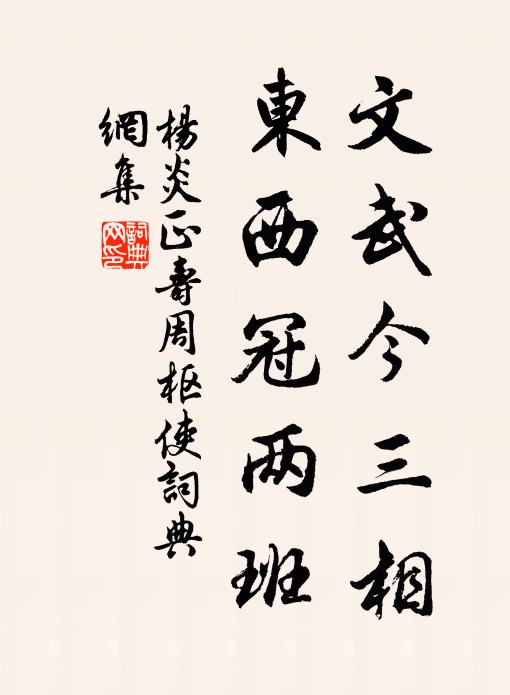 文武今三相
東西冠两班
楊炎正壽周枢使詞典
網集
詞典
网印